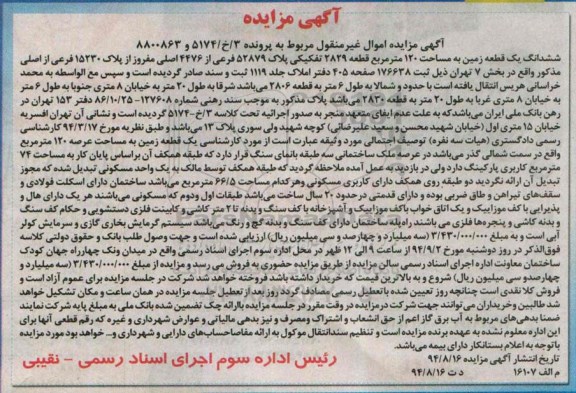 آگهی مزایده
آگهی مزایده اموال غیرمنقول مربوط به پرونده ۳/خ/۵۱۷۴ و ۸۸۰۰۸۶۳
ششدانگ یک قطعه زمین به مساحت ۱۲۰ مترمربع قطعه ۲۸۲۹ تفکیکی پلاک ۵۲۸۷۹ فرعی از ۴۴۷۶ اصلی مفروز از پلاک ۱۵۲۳۰ فرعی از اصلی
مذکور واقع در بخش ۷ تهران ذیل ثبت ۱۷۶۶۳۸ صفحه ۴۰۵ دفتر املاک جلد ۱۱۱۹ ثبت و سند صادر گردیده است و سپس مع الواسطه به محمد
خراسانی هریس انتقال یافته است با حدود و شمالا به طول ۶ متر به قطعه ۲۸۰۶ می‌باشد شرقا به طول ۲۰ متر به خیابان ۸ متری جنوبا به طول ۶ متر
به خیابان ۸ متری غربا به طول ۲۰ متر به قطعه ۲۸۳۰ می‌باشد پلاک مذکور به موجب سند رهنی شماره ۱۲۷۶۰۸-۸۶/۱۰/۲۵ دفتر ۱۵۳ تهران در
رهن بانک ملی ایران می‌باشد که به علت عدم ایفای تعهد منجر به صدور اجرائیه تحت کلاسه ۳/خ-۵۱۷۴ گردیده است و نشانی آن تهران افسریه
خیابان ۱۵ متری اول (خیابان شهید محسن و سعید علیرضائی) کوچه شهید ولی سوری پلاک ۱۳ می‌باشد و طبق نظریه مورخ ۹۴/۳/۱۷ کارشناسی
رسمی دادگستری (هیات سه نفره) توصیف اجمالی مورد وثیقه عبارت است از مورد کارشناسی یک قطعه زمین به مساحت عرصه ۱۲۰ مترمربع
واقع در سمت شمالی گذر می‌باشد در عرصه ملک ساختمانی سه طبقه بانمای سنگ قرار دارد که طبقه همکف آن براساس پایان کار به مساحت ۷۴
مترمربع کاربری پارکینگ دارد ولی در بازدید به عمل آمده ملاحظه گردید که طبقه همکف توسط مالک به یک واحد مسکونی تبدیل شده که مجوز
تبدیل آن ارائه نگردید دو طبقه روی همکف دارای کاربری مسکونی وهر کدام مساحت ۶۶/۵ مترمربع می‌باشد ساختمان دارای اسکلت فولادی و
سقف‌های تیرآهن و طاق ضربی بوده و دارای قدمتی در حدود ۲۰ سال ساخت می‌باشد طبقات اول ودوم که مسکونی می‌باشند هر یک دارای هال و
پذیرایی با کف موزاییک و یک اتاق خواب باکف موزاییک و آشپزخانه با کف سنگ و بدنه تا ۲ متر کاشی و کابینت فلزی دستشویی و حکام کف سنگ
و بدنه کاشی و پنجره‌ها فلزی می باشند راه‌پله ساختمان دارای کف سنگ و بدنه گچ و رنگ می‌باشد سیستم گرمایش بخاری گازی و سرمایش کولر
آبی است و به مبلغ ۳/۴۳۰/۰۰۰/۰۰۰ (سه میلیارد و چهارصد و سی میلیون ریال) ارزیابی شده است و جهت وصول طلب بانک و حقوق دولتی کلاسه
فوق‌الذکر در روز دوشنبه مورخ ۹۴/۹/۲ از ساعت ۹ الی ۱۲ ظهر در محل اداره سوم اجرای اسناد رسمی واقع در میدان ونک چهارراه جهان کودک
ساختمان معاونت اداره اجرای اسناد رسمی سالن مزایده از طریق مزایده حضوری به فروش می رسد و مزایده از مبلغ ۳/۴۳۰/۰۰۰/۰۰۰ (سه میلیارد و
چهارصدو سی میلیون ریال) شروع و به بالاترین قیمت که خریدار داشته باشد فروخته خواهد شد شرکت در جلسه مزایده برای عموم آزاد است و
فروش کلا نقدی است چنانچه روز تعیین شده باتعطیل رسمی مصادف گردد روز بعد از تعطیل جلسه مزایده در همان ساعت و مکان تشکیل خواهد
شد طالبین وخریداران می توانند جهت شرکت در مزایده در وقت مقرر در جلسه مزایده باارائه چک تضمین شده بانک ملی به مبلغ پایه شرکت نمایند
ضمنا بدهی‌های مربوط به آب برق گاز اعم از حق انشعاب و اشتراک ومصرف و نیز بدهی مالیاتی و عوارض شهرداری و غیره که رقم قطعی آنها برای
این اداره معلوم نشده به عهده برنده مزایده است و تنظیم سند انتقال موکول به ارائه مفاصاحساب‌های دارایی و شهرداری و... خواهد بود مورد مزایده
باتوجه به اعلام بستانکار دارای بیمه می‌باشد.
تاریخ انتشار آگهی مزایده ۹۴/۸/۱۶
م الف ۱۶۱۰۷ د ت ۹۴/۸/۱۶
رئیس اداره سوم اجرای اسناد رسمی – نقیبی